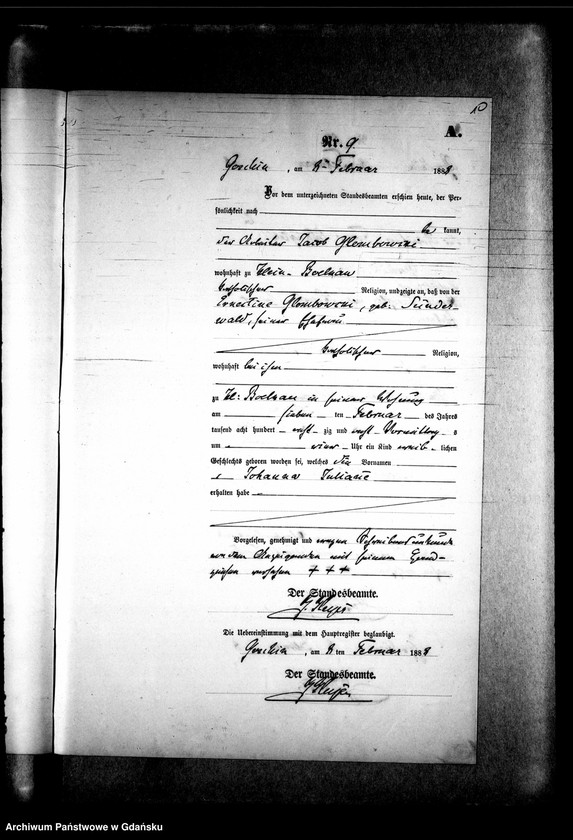 10
A.
Nr. 9.
am 8. Februar 1888
Vor dem unterzeichneten Standesbeamten erschien heute, der Per-
sönlichkeit nach
be kannt,
der Arbeiter Jacob Glombowski
wohnhaft zu Klein- Boelkau
katholischer Religion, und zeigte an, daß von der
Ernestine Glombowski, geb: Sünder-
wald, seiner Ehefrau
katholischer Religion,
wohnhaft bei ihm
zu Kl: Boelkau in seiner Wohnung
am sieben ten Februar des Jahres
tausend acht hundert acht zig und acht Vormittags
um Uhr ein Kind weib lichen
Geschlechts geboren worden sei, welches die Vornamen
Johanna Juliane
erhalten habe
Vorgelesen, genehmigt und wegen Schreibensunkunde
von dem Anzeigenden mit seinem Hand-
zeichen versehen + + +
Der Standesbeamte.
Die Uebereinstimmung mit dem Hauptregister beglaubigt.
am 8 ten Februar 1888
Der Standesbeamte.
Archiwum Państwowe w Gdańsku